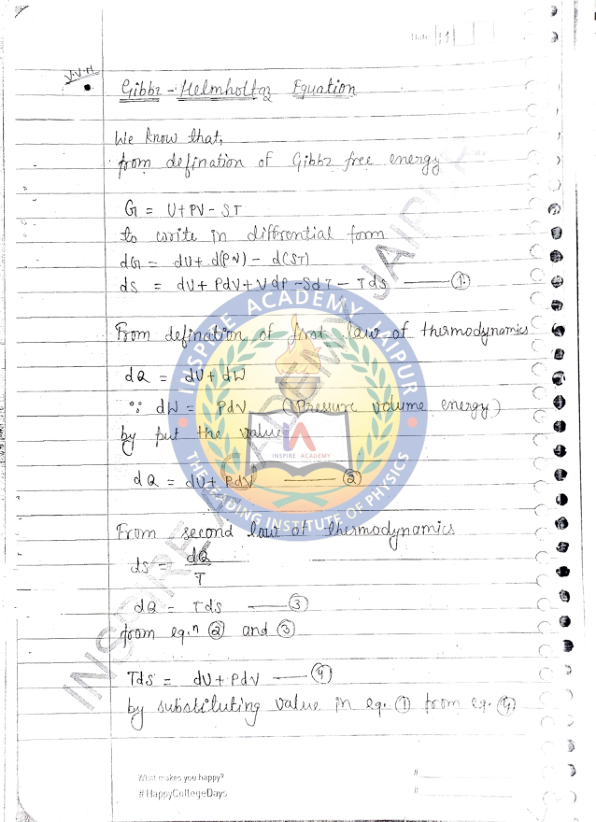 Date
V.V.M
Gibbz - Helmholtaz Equation
We know that,
from defination of Gibbz free energy
G = U+PV-ST
to write in diffrential form
dG = dU+d(PV) - d(ST)
dS = dU+PdV+VdP-SdT-TdS ①
From defination of first law of thermodynamics
dQ = dU+dW
∵ dW = PdV (Pressure volume energy)
by put the value
dQ = dU+PdV ②
From second law of thermodynamics
dS = dQ/T
dQ = TdS ③
from eq.n ② and ③
TdS = dU+PdV ④
by substiluting value in eq. ① from eq. ④
INSPIRE ACADEMY JAIPUR
THE LEADING INSTITUTE OF PHYSICS
INSPIRE ACADEMY
INSPIRE ACADEMY JAIPUR
What makes you happy?
#HappyCollegeDays
#
#